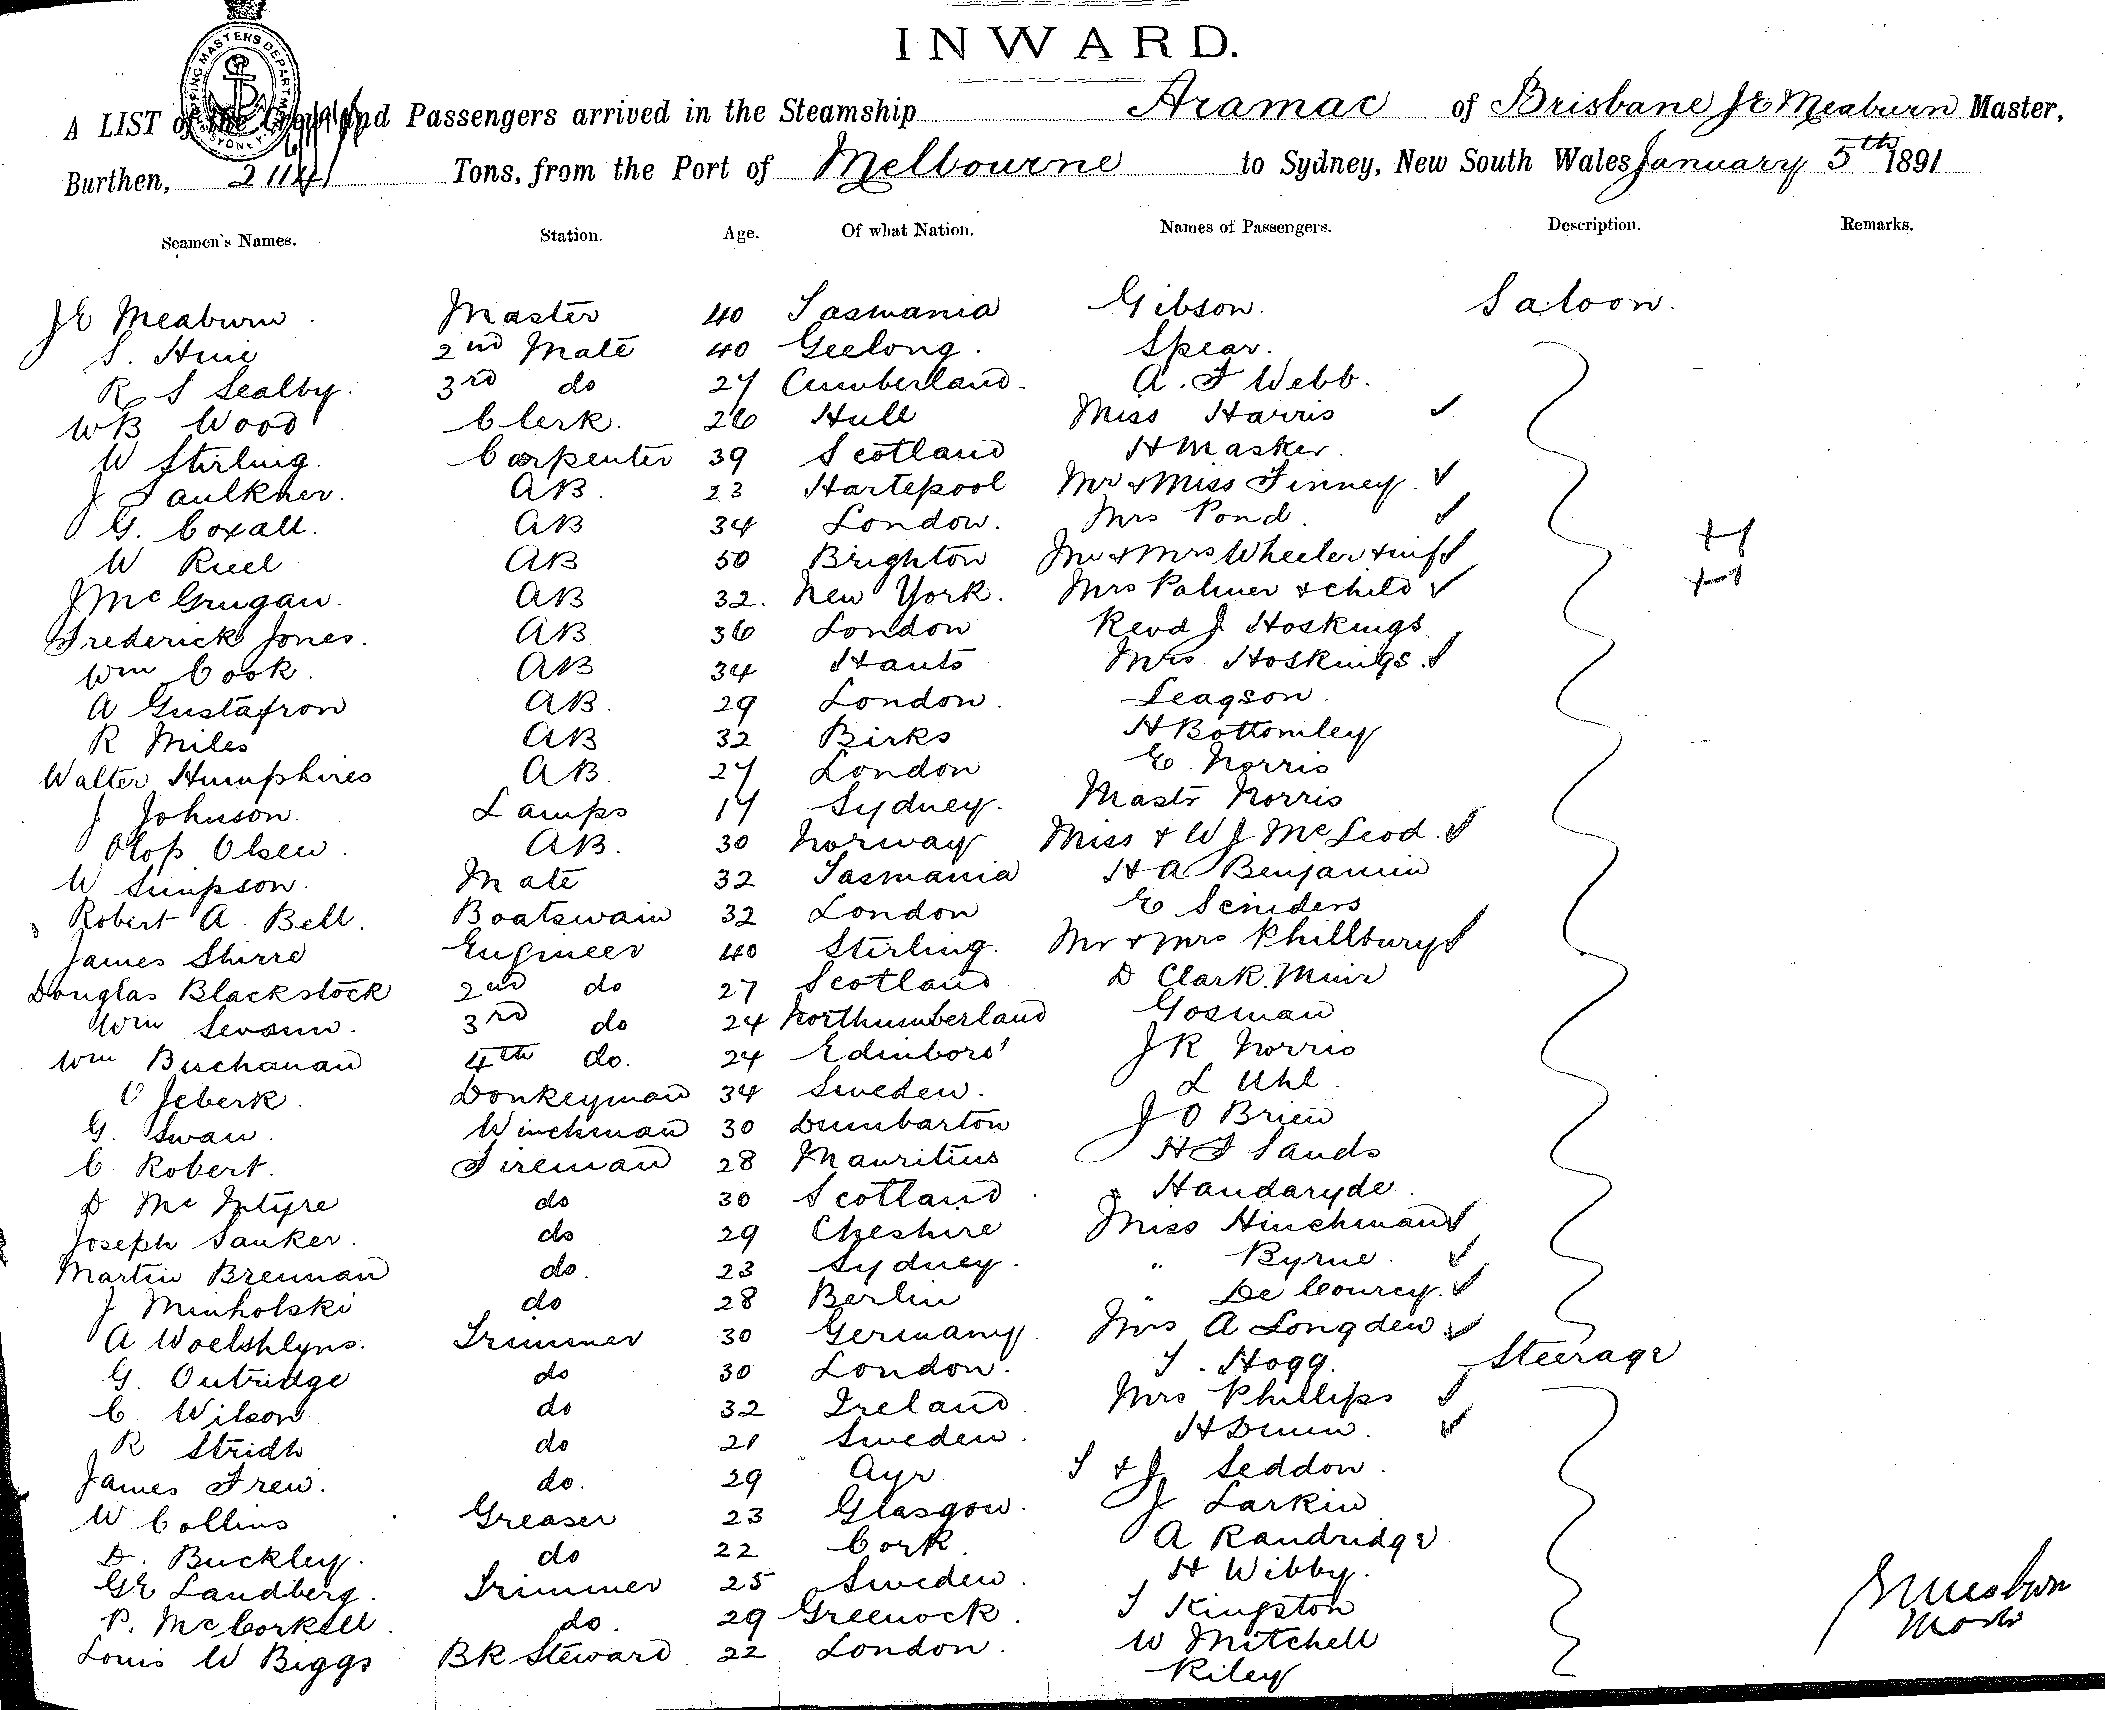 INWARD.
SHIPPING MASTERS DEPARTMENT SYDNEY
A LIST of the Crew and Passengers arrived in the Steamship Aramac of Brisbane JE Meaburn Master,
Burthen, 2114 Tons, from the Port of Melbourne to Sydney, New South Wales January 5th 1891
Seamen's Names. Station. Age. Of what Nation. Names of Passengers. Description. Remarks.
JE Meaburn Master 40 Tasmania Gibson. Saloon.
S. Huie 2nd Mate 40 Geelong. Spear.
R S Sealby. 3rd do 27 Cumberland. A. F Webb.
WB Wood Clerk. 26 Hull Miss Harris ✓
W Stirling. Carpenter 39 Scotland H Masker.
J Faulkner. AB. 23 Hartepool Mr & Miss Finney. ✓
G. Coxall. AB 34 London. Mrs Pond. ✓
W Ruel AB 50 Brighton Mr & Mrs Wheeler & inf ✓
J McGrugan. AB 32. New York. Mrs Palmer & child ✓
Frederick Jones. AB 36 London Revd J Hoskings
Wm Cook. AB 34 Hants Mrs Hoskings. ✓
A Gustafron AB. 29 London. Leagson.
R Miles AB 32 Birks H Bottomley
Walter Humphires AB. 27 London E. Norris
J Johnson. Lamps 17 Sydney. Mastr Norris
Olof Olsen. AB. 30 Norway Miss & W J McLeod. ✓
W Simpson. Mate 32 Tasmania H A Benjamin
Robert A. Bell. Boatswain 32 London E Sciniders
James Shirre Engineer 40 Stirling. Mr & Mrs Phillbury ✓
Douglas Blackstock 2nd do 27 Scotland D Clark. Muir
Wm 3rd do 24 Northumberland Gosman
Wm Buchanan 4th do. 24 Edinboro' J R Norris
Jeberk. Donkeyman 34 Sweden. L Uhl.
G. Swan. Winchman 30 Dumbarton J O Brien
C. Robert. Fireman 28 Mauritius H F Sands
D McIntyre do 30 Scotland Handaryde.
Joseph Tanker. do 29 Cheshire Miss Hinchman ✓
Martin Brennan do. 23 Sydney. " Byrne. ✓
J Minholski do 28 Berlin " De Courcy. ✓
A Woelshlyns. Trimmer 30 Germany. Mrs A Longden ✓
G. Outridge do 30 London. T. Hogg. Steerage
C. Wilson do 32 Ireland Mrs Phillips ✓
R Stridh do 21 Sweden. H Dunn. ✓
James Frew. do. 29 Ayr T & J Seddon.
W Collins Greaser 23 Glasgow. J Larkin
D. Buckley. do 22 Cork. A Randridge
GE Landberg. Trimmer 25 Sweden. H Wibby.
P. McCorkell. do. 29 Greenock. T Kingston
Louis W Biggs BR Steward 22 London. W Mitchell
Riley
JE Meaburn
Mastr